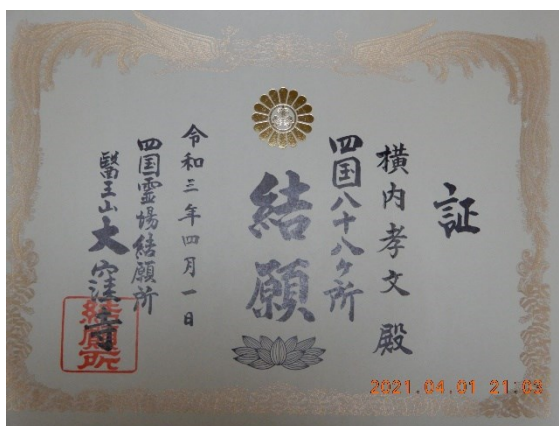 証
横内孝文 殿
四国八十八ヶ所
結願
令和三年四月一日
四国霊場結願所
醫王山大窪寺
結願所
2021.04.01 21:03